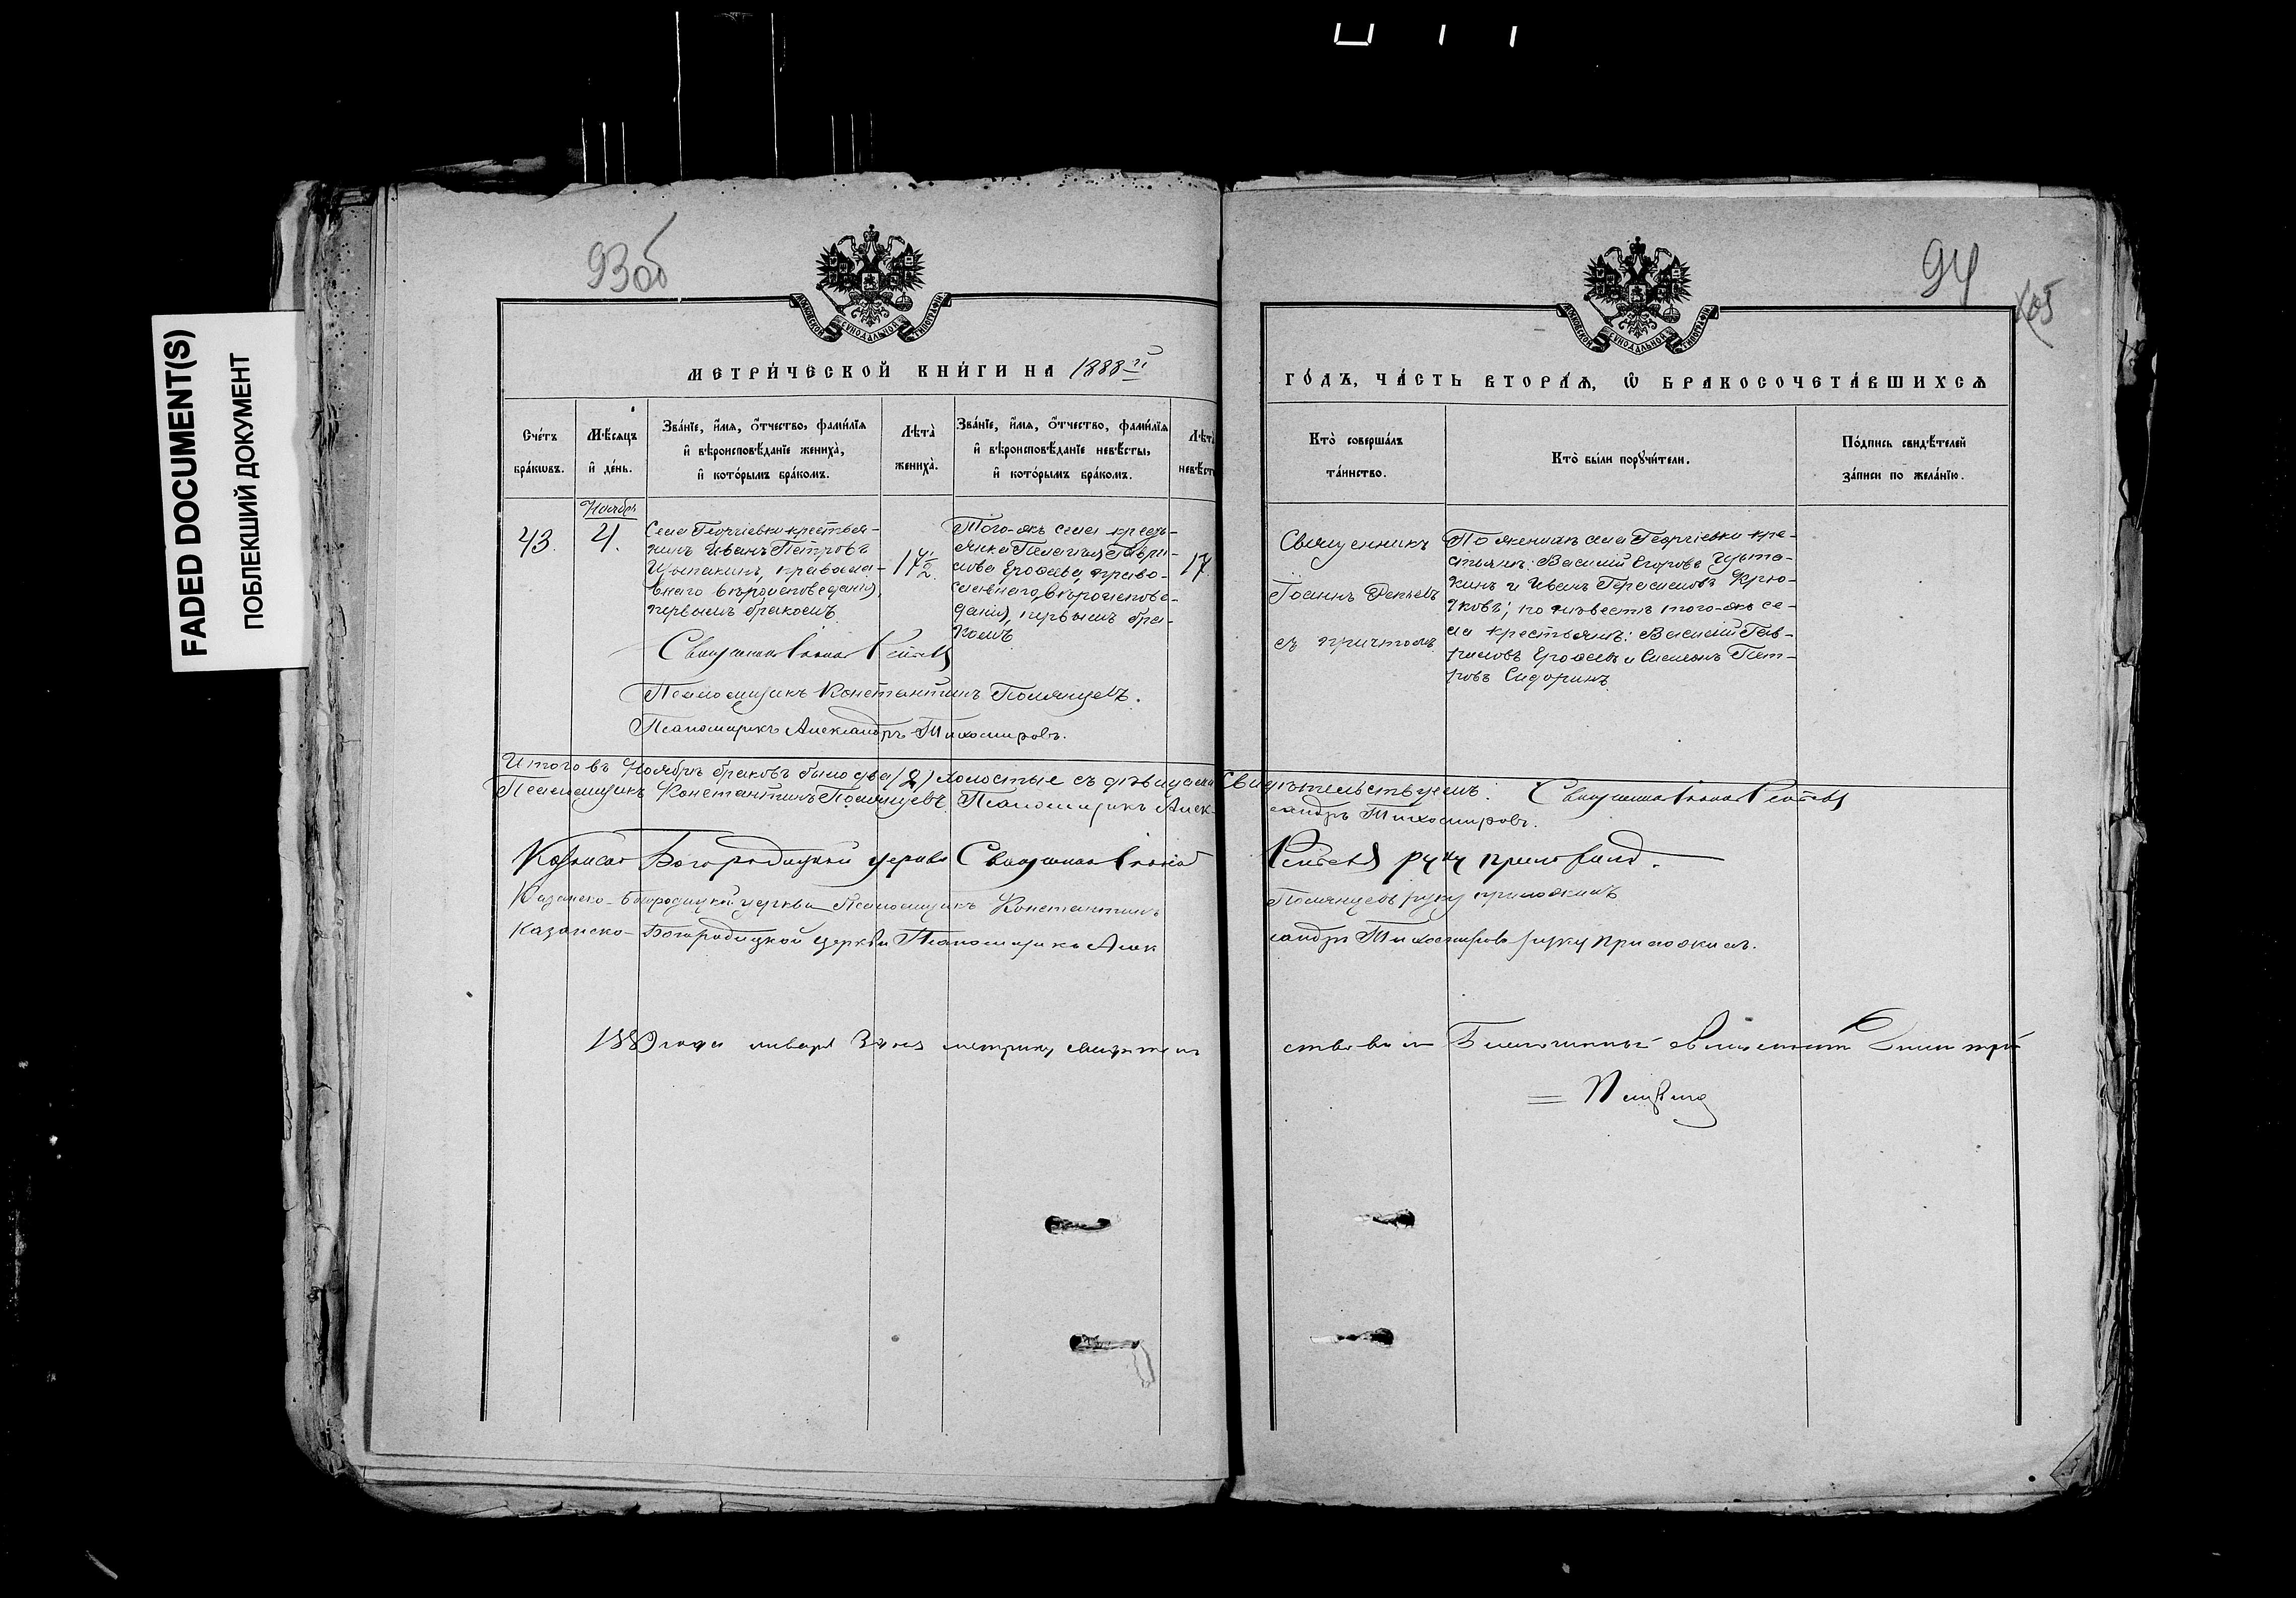 FADED DOCUMENT(S)
ПОБЛЕКШИЙ ДОКУМЕНТ
93об
94
МОСКОВСКОЙ СУНОДАЛЬНОЙ ТИПОГРАФІИ
МОСКОВСКОЙ СУНОДАЛЬНОЙ ТИПОГРАФІИ
МЕТРИ́ЧЕСКОЙ КНИ́ГИ НА 1888й
ГО́ДЪ, ЧА́СТЬ ВТОРА́Я, Ѡ҆ БРАКОСОЧЕТА́ВШИХСЯ
Сче́тъ бра́кωвъ.
Мѣ́сяцъ и҆ де́нь.
Зва́нїе, и҆́мя, ѻ҆́тчество, фами́лїя и҆ вѣроисповѣ́данїе жениха̀, и҆ кото́рымъ бра́комъ.
Лѣта̀ жениха̀.
Зва́нїе, и҆́мя, ѻ҆́тчество, фами́лїя и҆ вѣроисповѣ́данїе невѣ́сты, и҆ кото́рымъ бра́комъ.
Лѣта̀ невѣ́сты
Кто̀ соверша́лъ та́инство.
Кто̀ бы́ли порꙋчи́тели.
По́дпись свидѣ́телей за́писи по жела́нїю.
Ноябрь
43.
4.
Села Георгіевки крестья-
нинъ Иванъ Петровъ
Цыпакинъ, правосла-
внаго вѣроисповеданія,
первымъ бракомъ.
Того-жъ села кресть-
янка Пелагея Гаври-
лова Ерофеева, право-
славнаго вѣроиспове-
данія, первымъ бра-
комъ
17.
Священникъ
Іоаннъ
съ причтомъ.
По женихѣ села Георгіевки кре-
стьяне: Василій Егоровъ Цыпа-
кинъ и Иванъ Герасимовъ Крю-
ковъ; по невѣстѣ того-жъ се-
ла крестьяне: Василій Гав-
риловъ Ерофеевъ и Симеонъ Пет-
ровъ Сидоринъ.
Священникъ Іоаннъ
Псаломщикъ Константинъ Помянцевъ.
Псаломщикъ Александръ Тихомировъ.
Итого въ Ноябрѣ браковъ было два (2) холостые съ дѣвицами Свидѣтельствуемъ: Священникъ Іоаннъ
Псаломщикъ Константинъ Помянцевъ. Псаломщикъ Алек-
сандръ Тихомировъ.
Казанско Богородицкой церкви Священникъ Іоаннъ руку приложилъ.
Казанско-Богородицкой церкви Псаломщикъ Константинъ Помянцевъ руку приложилъ
Казанско-Богородицкой церкви Псаломщикъ Алек
сандръ Тихомировъ руку приложилъ.
1889 года января 3 дня метрику свидѣтель
ствовалъ Благочинный священникъ Димитрій